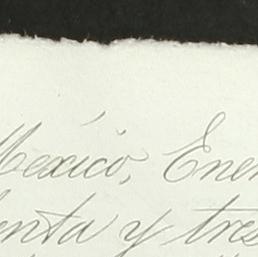 México, Ener
enta y tres